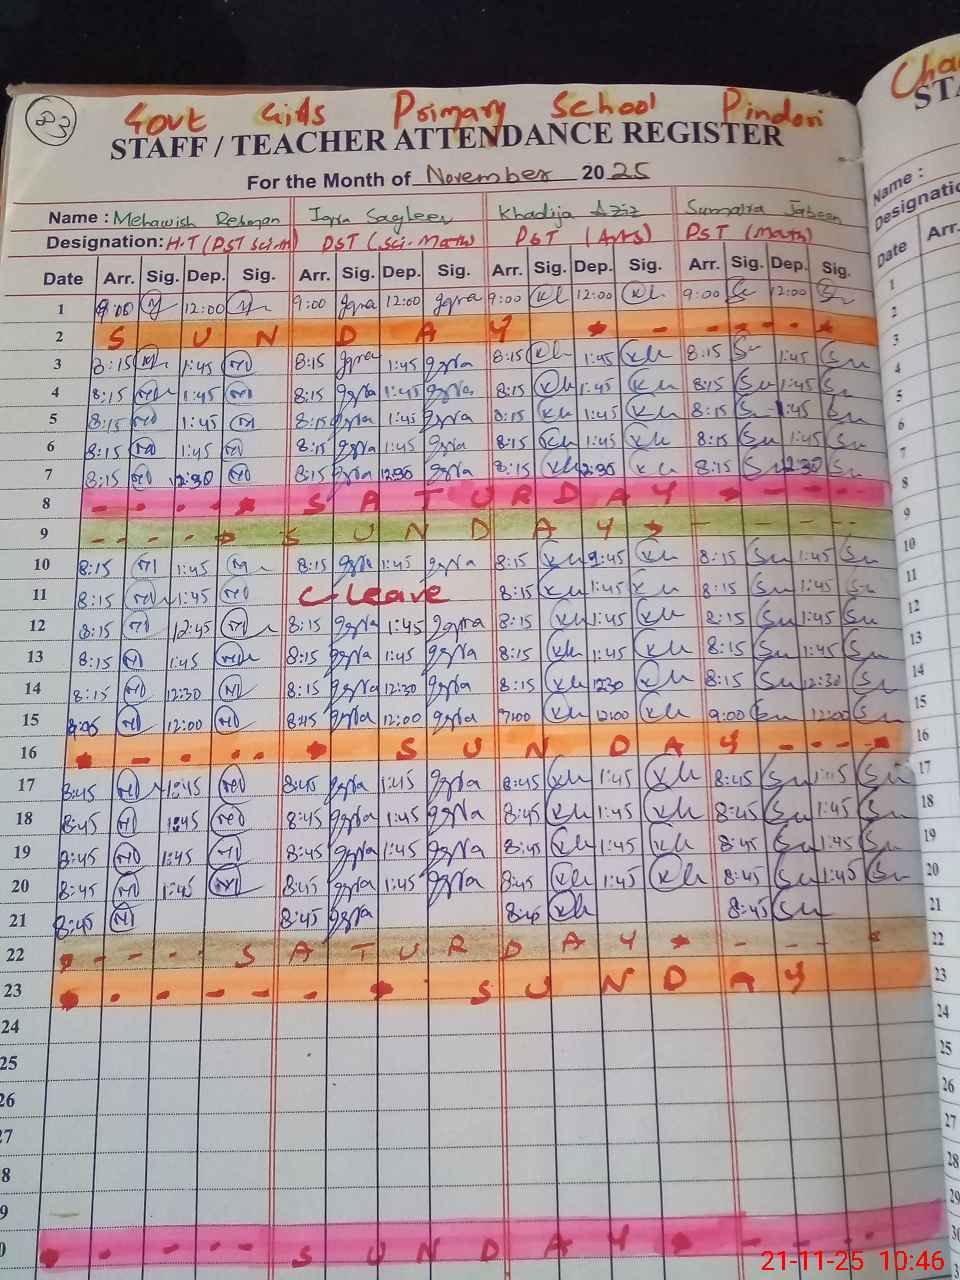 Govt Girls Primary School Pindori
STAFF / TEACHER ATTENDANCE REGISTER
For the Month of November 2025
Name : Mehawish Rehman Iqra Saqleen Khadija Aziz Sumaira Jabeen
Designation: H.T (PST Sci-m) PST (Sci-Math) PST (Arts) PST (Math)
Date Arr. Sig. Dep. Sig. Arr. Sig. Dep. Sig. Arr. Sig. Dep. Sig. Arr. Sig. Dep. Sig.
1 9:00 12:00 9:00 Iqra 12:00 Iqra 9:00 Kh 12:00 Kh 9:00 Su 12:00 Su
2 SUNDAY
3 8:15 M 1:45 M 8:15 Iqra 1:45 Iqra 8:15 Kh 1:45 Kh 8:15 Su 1:45 Su
4 8:15 M 1:45 M 8:15 Iqra 1:45 Iqra 8:15 Kh 1:45 Kh 8:15 Su 1:45 Su
5 8:15 M 1:45 M 8:15 Iqra 1:45 Iqra 8:15 Kh 1:45 Kh 8:15 Su 1:45 Su
6 8:15 M 1:45 M 8:15 Iqra 1:45 Iqra 8:15 Kh 1:45 Kh 8:15 Su 1:45 Su
7 8:15 M 12:30 M 8:15 Iqra 12:30 Iqra 8:15 Kh 12:30 Kh 8:15 Su 12:30 Su
8 SATURDAY
9 SUNDAY
10 8:15 M 1:45 M 8:15 Iqra 1:45 Iqra 8:15 Kh 1:45 Kh 8:15 Su 1:45 Su
11 8:15 M 1:45 M C-Leave 8:15 Kh 1:45 Kh 8:15 Su 1:45 Su
12 8:15 M 12:45 M 8:15 Iqra 1:45 Iqra 8:15 Kh 1:45 Kh 8:15 Su 1:45 Su
13 8:15 M 1:45 M 8:15 Iqra 1:45 Iqra 8:15 Kh 1:45 Kh 8:15 Su 1:45 Su
14 8:15 M 12:30 M 8:15 Iqra 12:30 Iqra 8:15 Kh 1230 Kh 8:15 Su 12:30 Su
15 M 12:00 M 8:45 Iqra 12:00 Iqra Kh 12:00 Kh 9:00 Su 12:00 Su
16 SUNDAY
17 8:45 M 1:45 M 8:45 Iqra 1:45 Iqra 8:45 Kh 1:45 Kh 8:45 Su Su
18 8:45 M 1:45 M 8:45 Iqra 1:45 Iqra 8:45 Kh 1:45 Kh 8:45 Su 1:45 Su
19 8:45 M 1:45 M 8:45 Iqra 1:45 Iqra 8:45 Kh 1:45 Kh 8:45 Su 1:45 Su
20 8:45 M 1:45 M 8:45 Iqra 1:45 Iqra 8:45 Kh 1:45 Kh 8:45 Su 1:45 Su
21 8:45 M 8:45 Iqra 8:45 Kh 8:45 Su
22 SATURDAY
23 SUNDAY
24
25
26
27
8
9
0 SUNDAY
Cha
STA
Name :
Designatio
Date Arr.
1
2
3
4
5
6
7
8
9
10
11
12
13
14
15
16
17
18
19
20
21
22
23
24
25
26
27
28
29
30
21-11-25 10:46